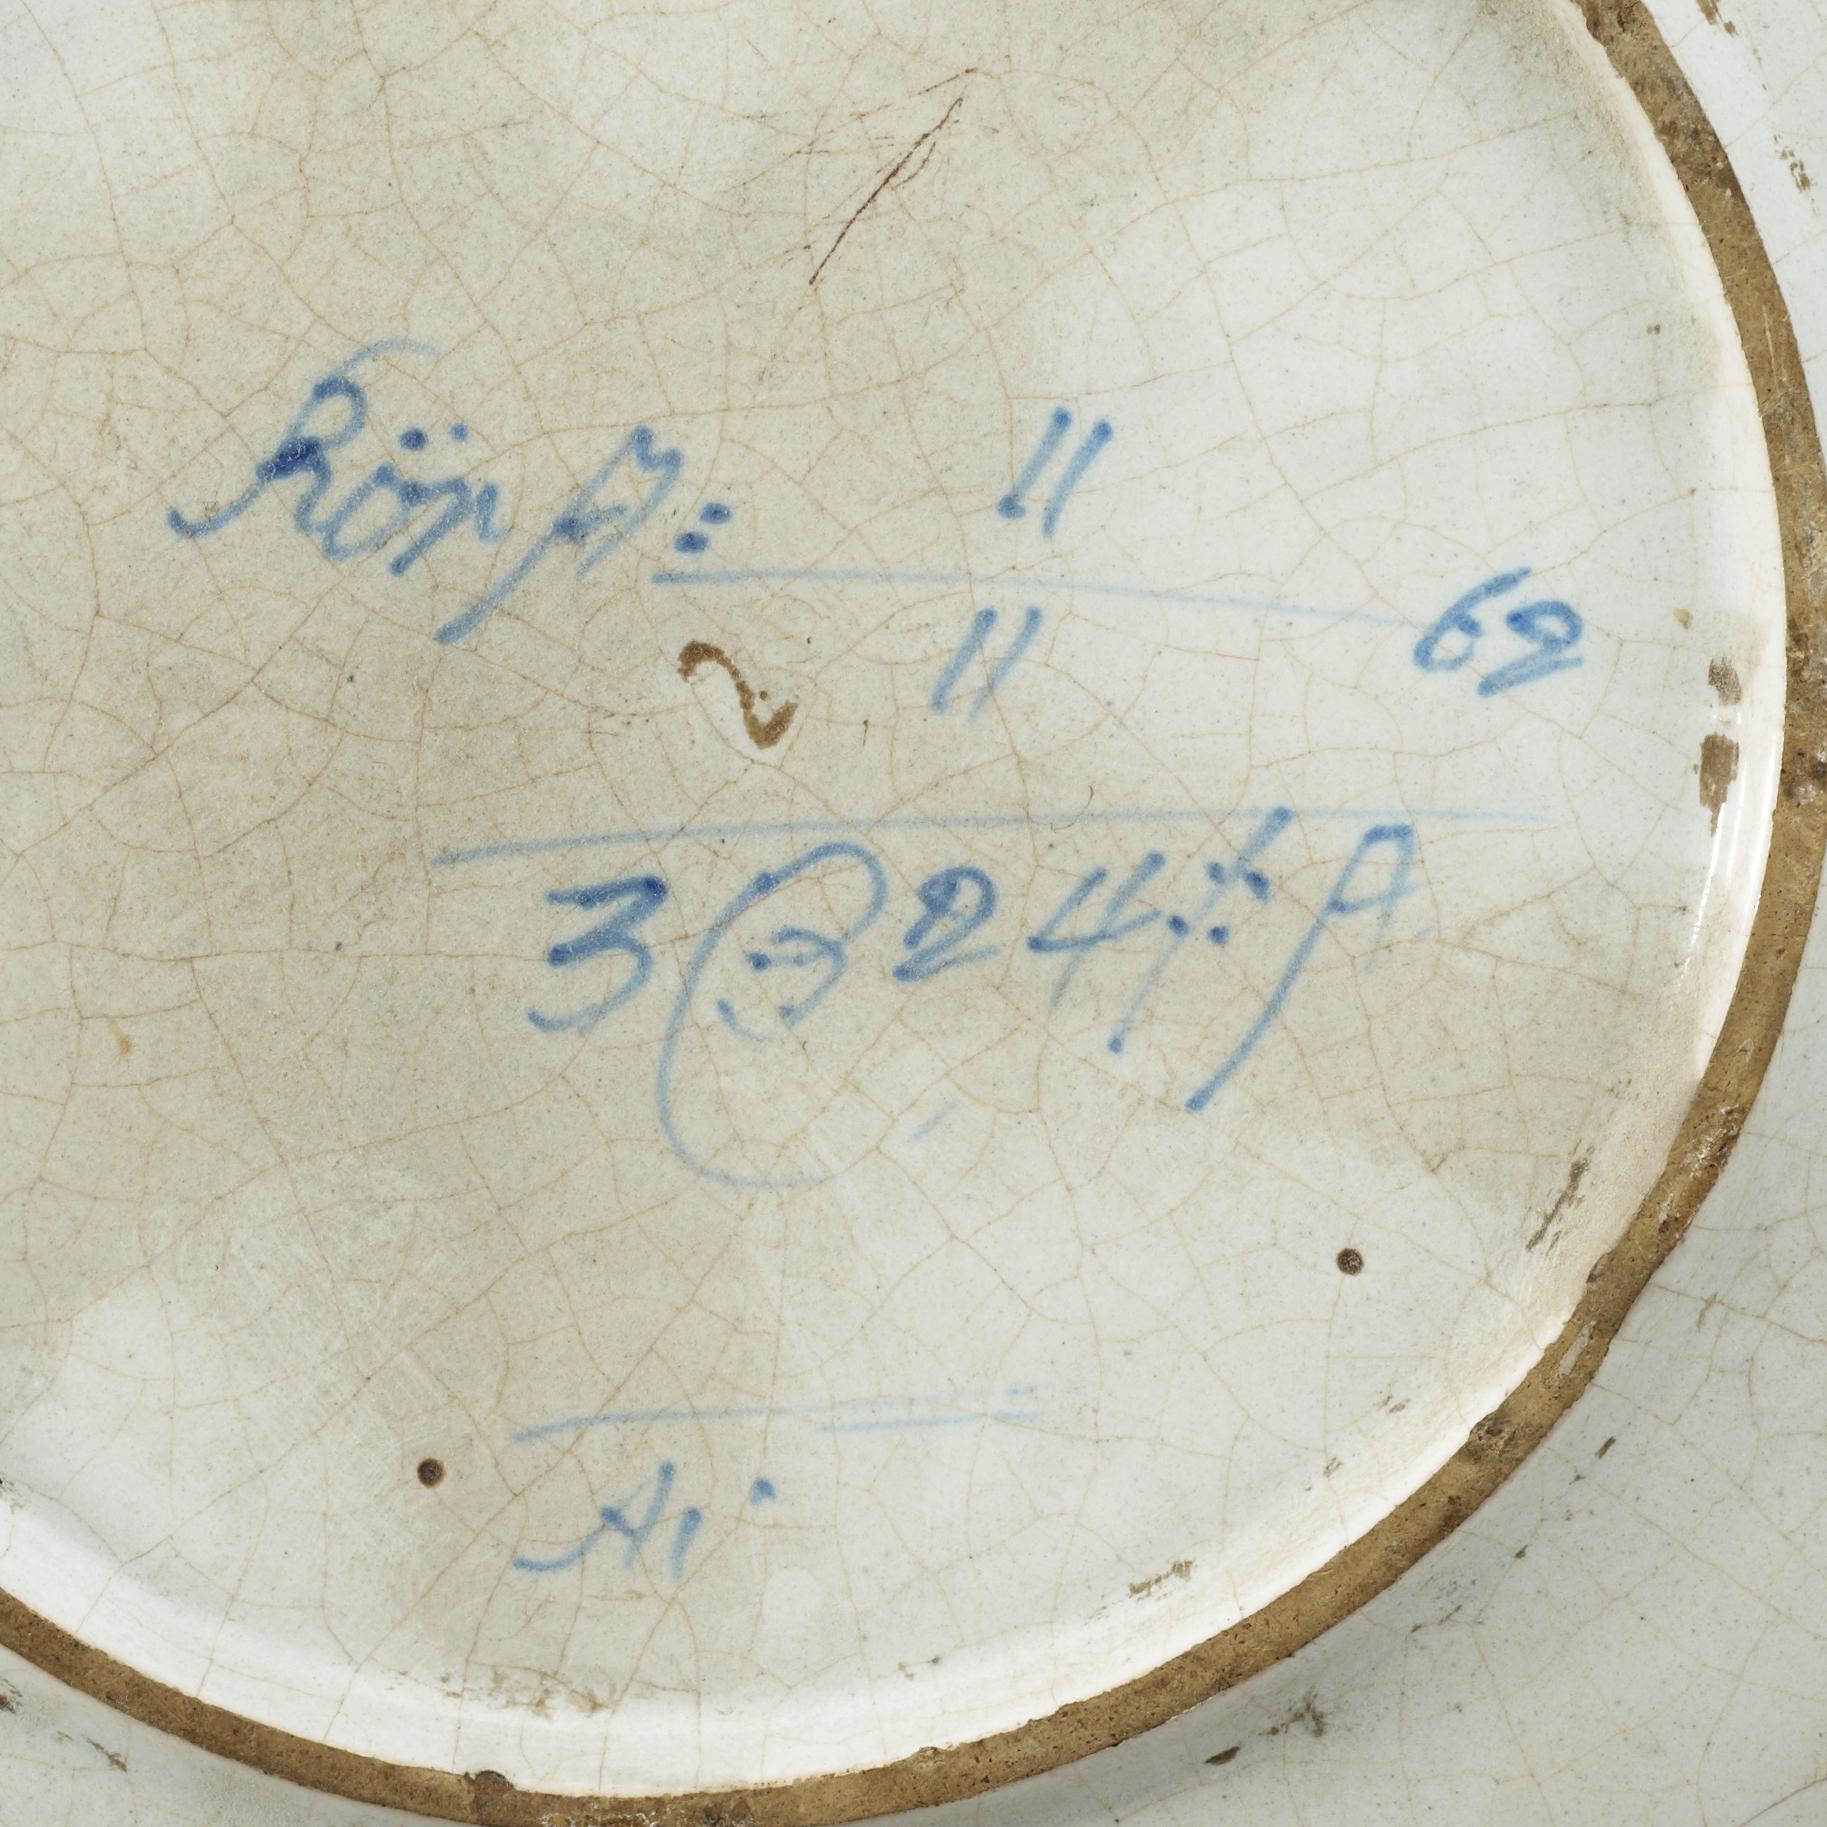 Rörſt: 11
11 62
3 24
Ai